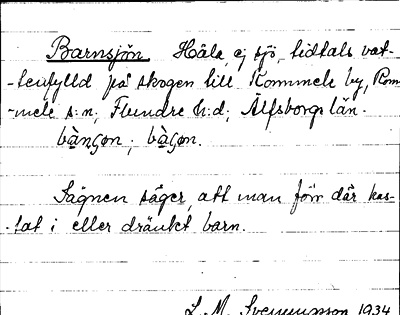 Barnsjön Håla, ej sjö, tidtals vat-
-tenfylld på skogen till Rommele by, Rom
-mele s:n, Flundre h:d, Älfsborgs län.
bànʃon ; bàʃon.
Sägnen säger, att man förr där kas-
-tat i eller dränkt barn.
L. M. Svennungsson 1934